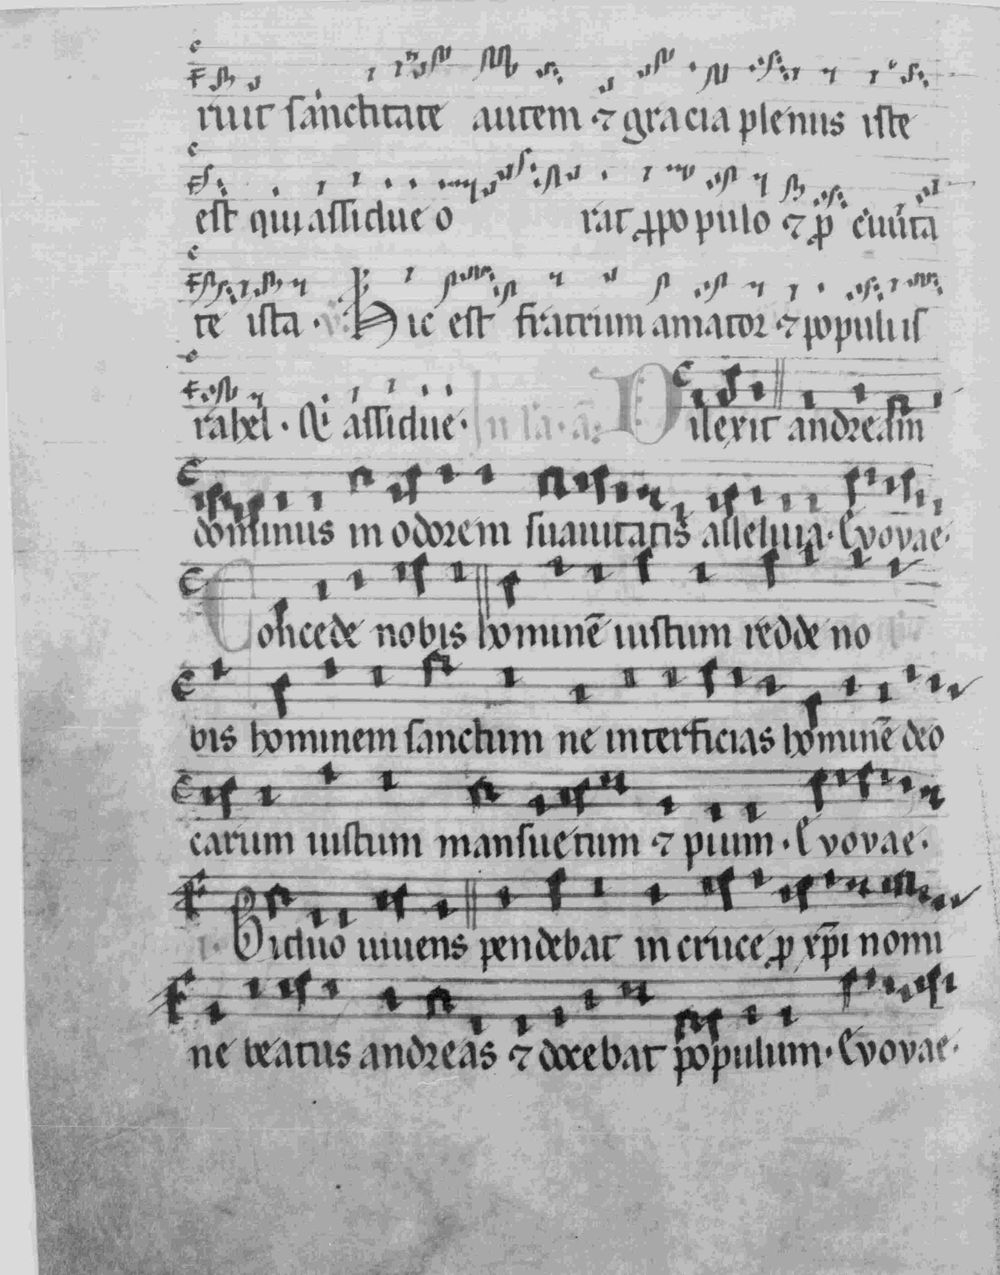 ruit sanctitate autem ⁊ gracia plenus iste
est qui assidue o rat ꝓpo pulo ⁊ ꝓ ciuita
te ista · v̄. Hic est fratrum amator ⁊ populi is
rahel · Qi assidue · In la · añ. Dilexit andream
dominus in odorem suauitatis alleluia · Evovae ·
Concede nobis hominē iustum redde no
bis hominem sanctum ne interficias hominē deo
carum iustum mansuetum ⁊ pium · Evovae ·
Biduo uiuens pendebat in cruce ꝓ xp̄i nomi
ne beatus andreas ⁊ docebat populum · Evovae ·